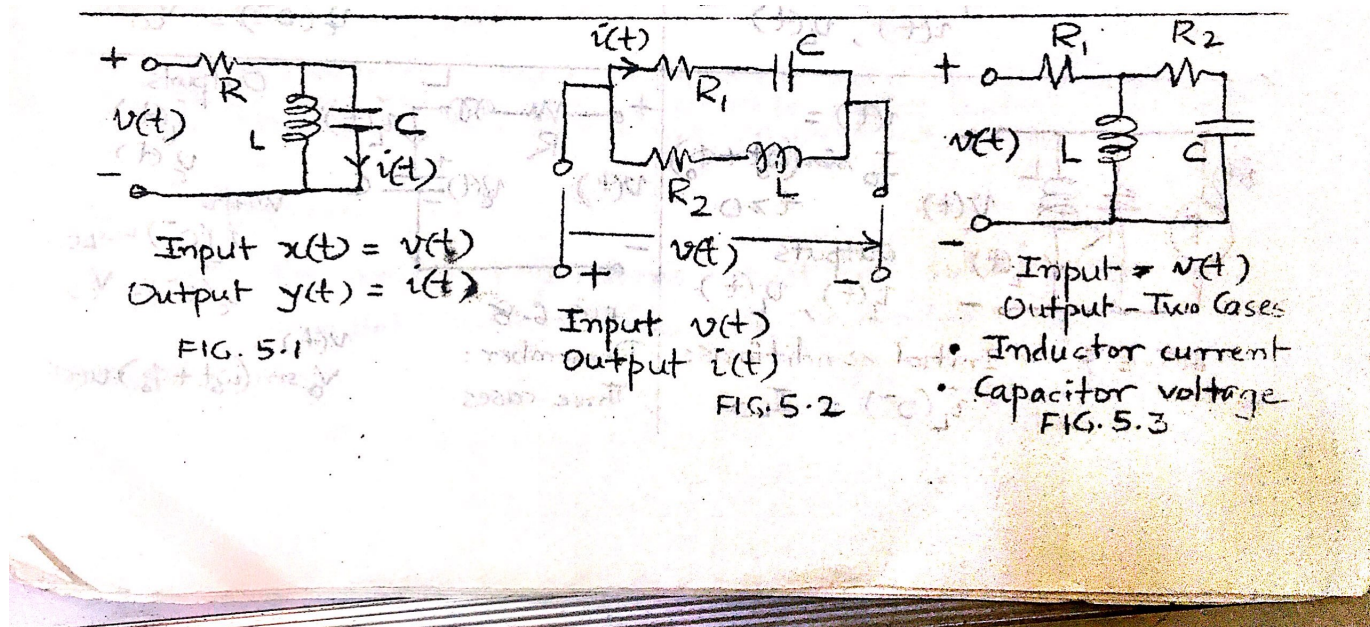 +
R
v(t)
L
C
-
i(t)
Input x(t) = v(t)
Output y(t) = i(t)
FIG. 5.1
i(t)
C
R1
R2
L
v(t)
+
-
Input v(t)
Output i(t)
FIG. 5.2
R1
R2
+
v(t)
L
C
-
Input - v(t)
Output - Two Cases
• Inductor current
• Capacitor voltage
FIG. 5.3